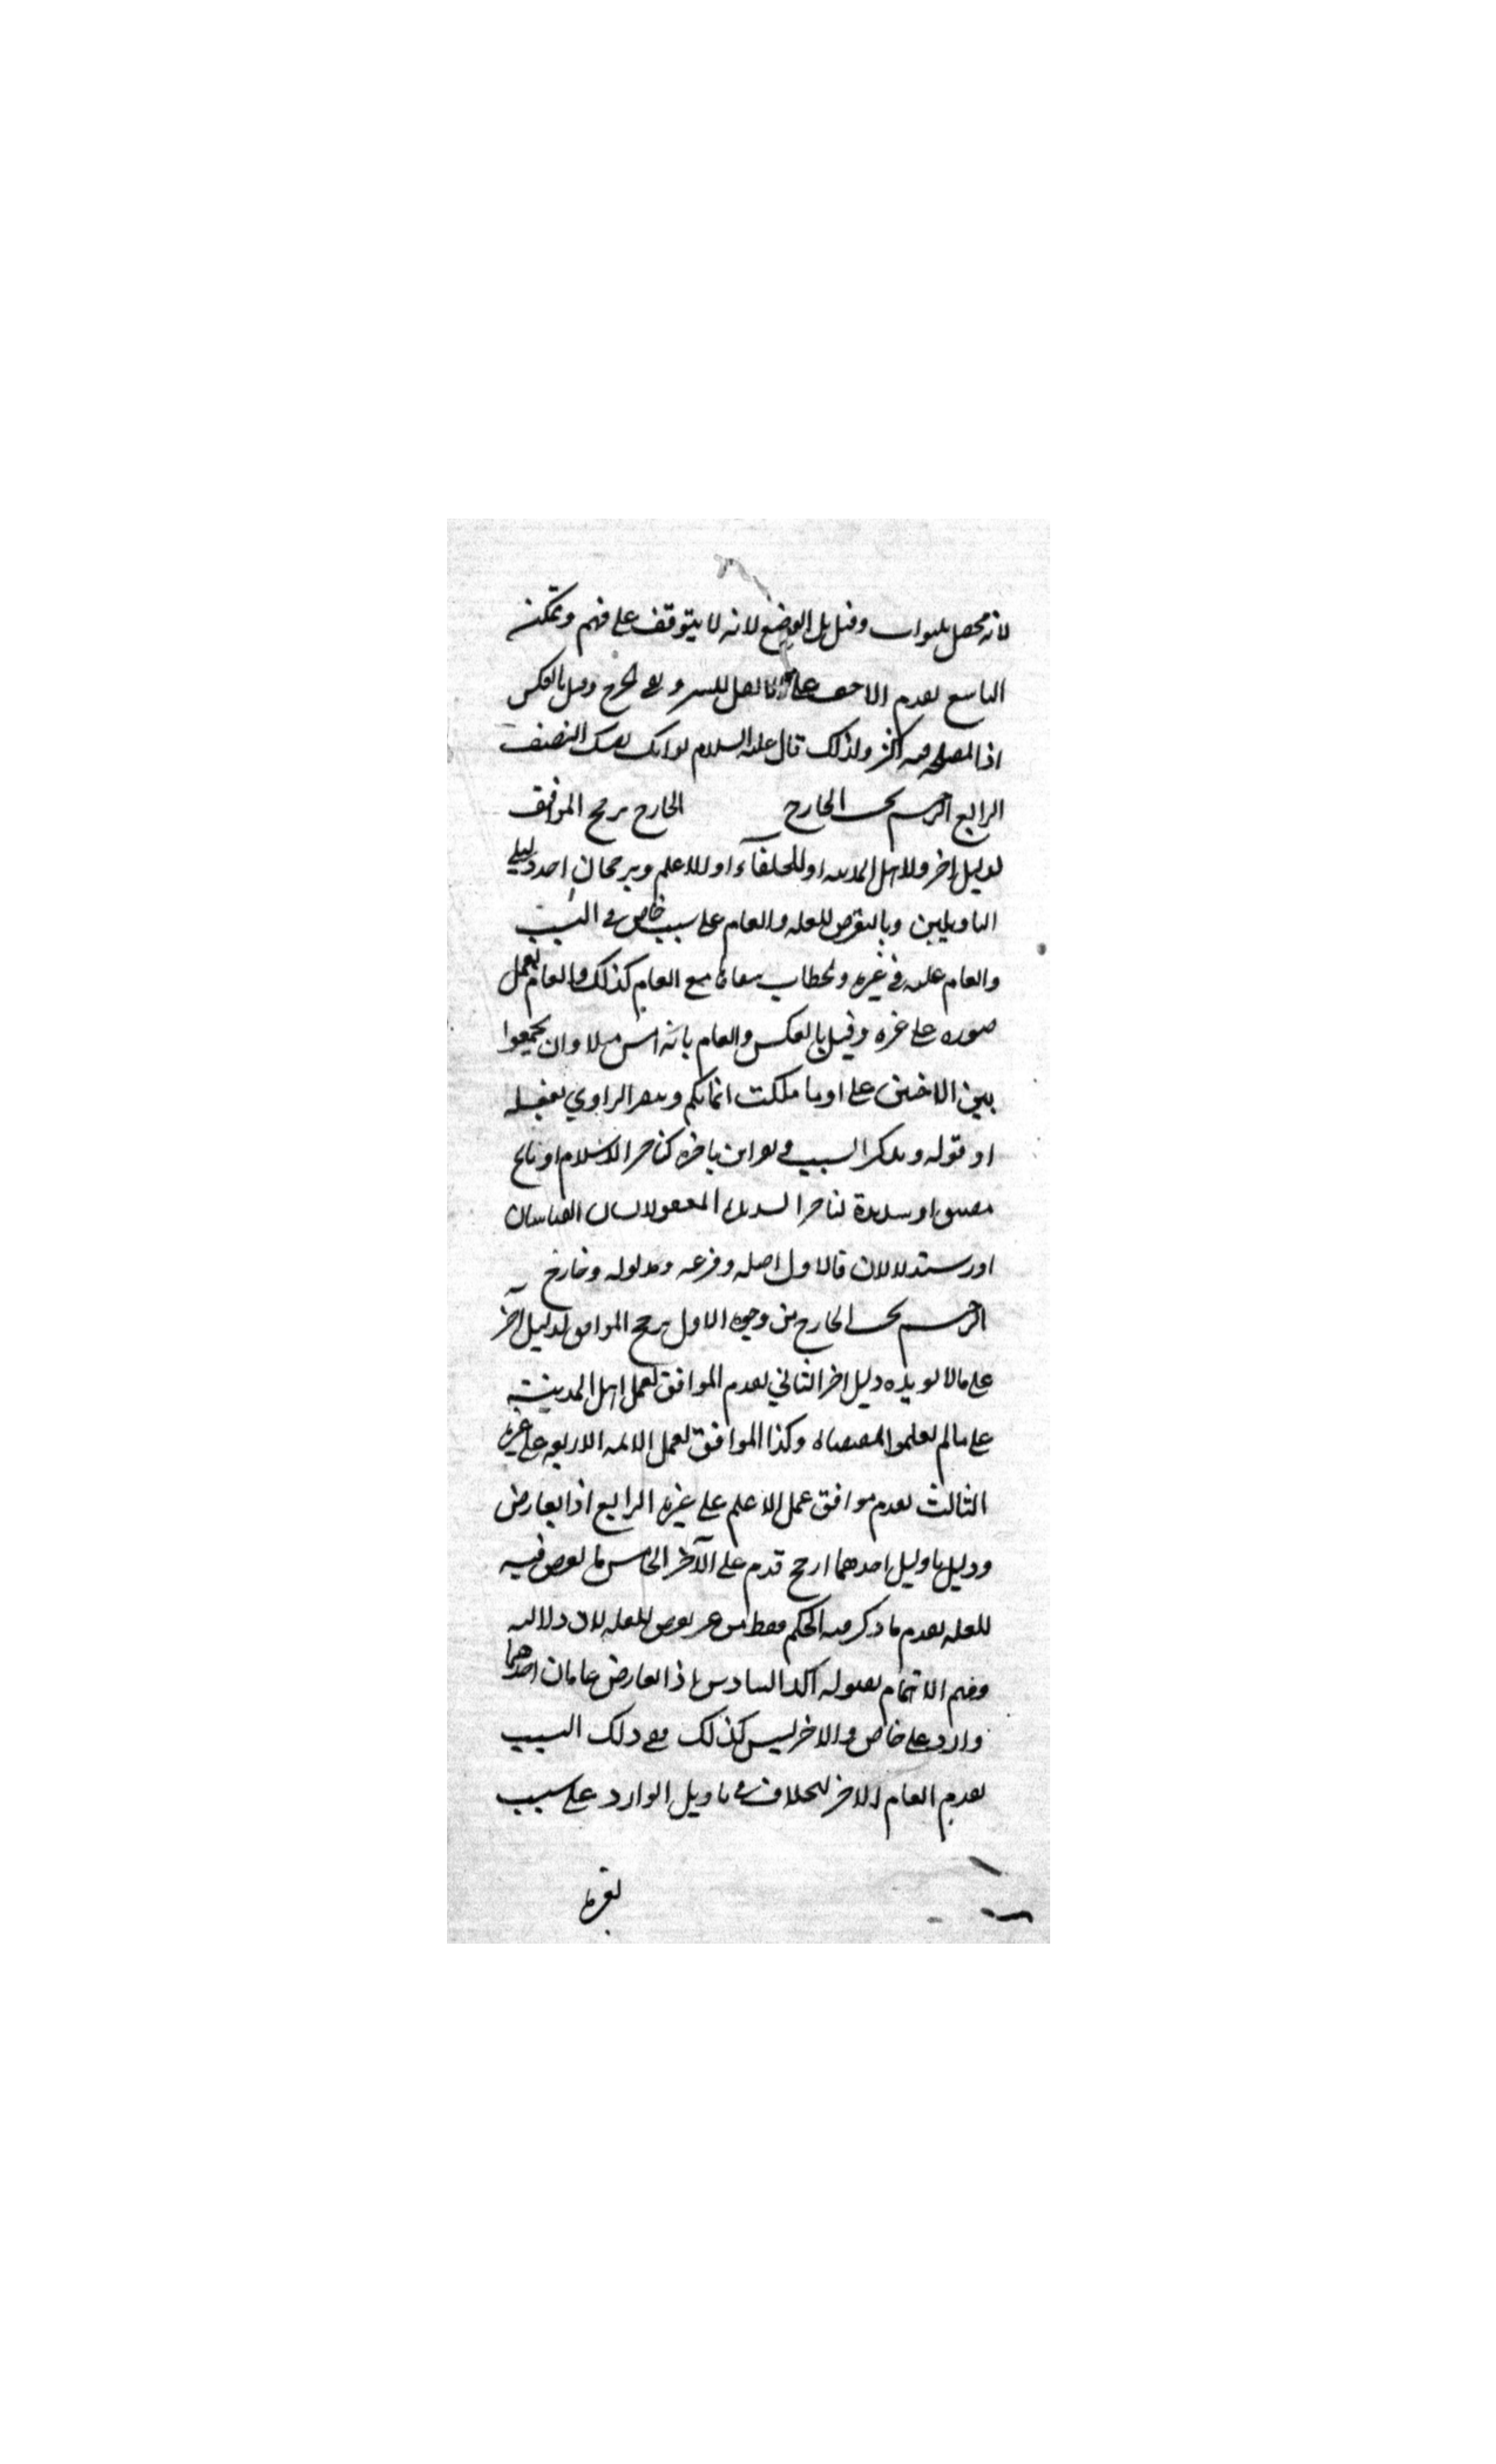 لانه محصل للثواب وقيل بل الوضع لانه لا يتوقف على فهم وتمكن
التاسع يقدم الاخف على الاثقل لليسر ونفي الحرج وقيل بالعكس
اذ المصلحه فيه اكثر ولذلك قال عليه السلام ثوابك بقدر
الرابع الترجيح بحسب الخارج الخارج يرجح الموافق
لدليل اخر ولاهل المدينه او للخلفآء او للاعلم وبرجحان احد دليلي
التاويلين وبالتعرض للعله والعام على سبب خاص في السبب
والعام عليه في غيره والخطاب شفاها مع العام كذلك والعام لم يعمل
صوره على غيره وقيل بالعكس والعام بانه امس مثلا وان تجمعوا
بين الاختين على او ما ملكت ايمانكم وبتفسير الراوي بفعله
او قوله وبذكر السبب وبقرائن تاخره كتاخر الاسلام او تاريخ
مضيق او تشديده لتاخر التشديد المعقولان قياسان
او استدلالان فالاول اصله وفرعه ومدلوله وخارج
الترجيح بحسب الخارج من وجوه الاول يرجح الموافق لدليل آخر
على ما لا يؤيده دليل اخر الثاني يقدم الموافق لعمل اهل المدينة
على ما لم يعملوا بمقتضاه وكذا الموافق لعمل الائمه الاربعه على غيره
الثالث يقدم موافق عمل الاعلم على غيره الرابع اذا تعارض
ودليل تاويل احدهما ارجح قدم على الآخر الخامس ما تعرض فيه
للعله يقدم ما ذكر فيه الحكم فقط من غير تعرض للعله لان دلالته
وفهم الاهتمام بقبوله آكد السادس اذا تعارض عامان احدهما
وارد على خاص والاخر ليس كذلك ففي ذلك السبب
يقدم العام الاخر للخلاف في تاويل الوارد على سبب